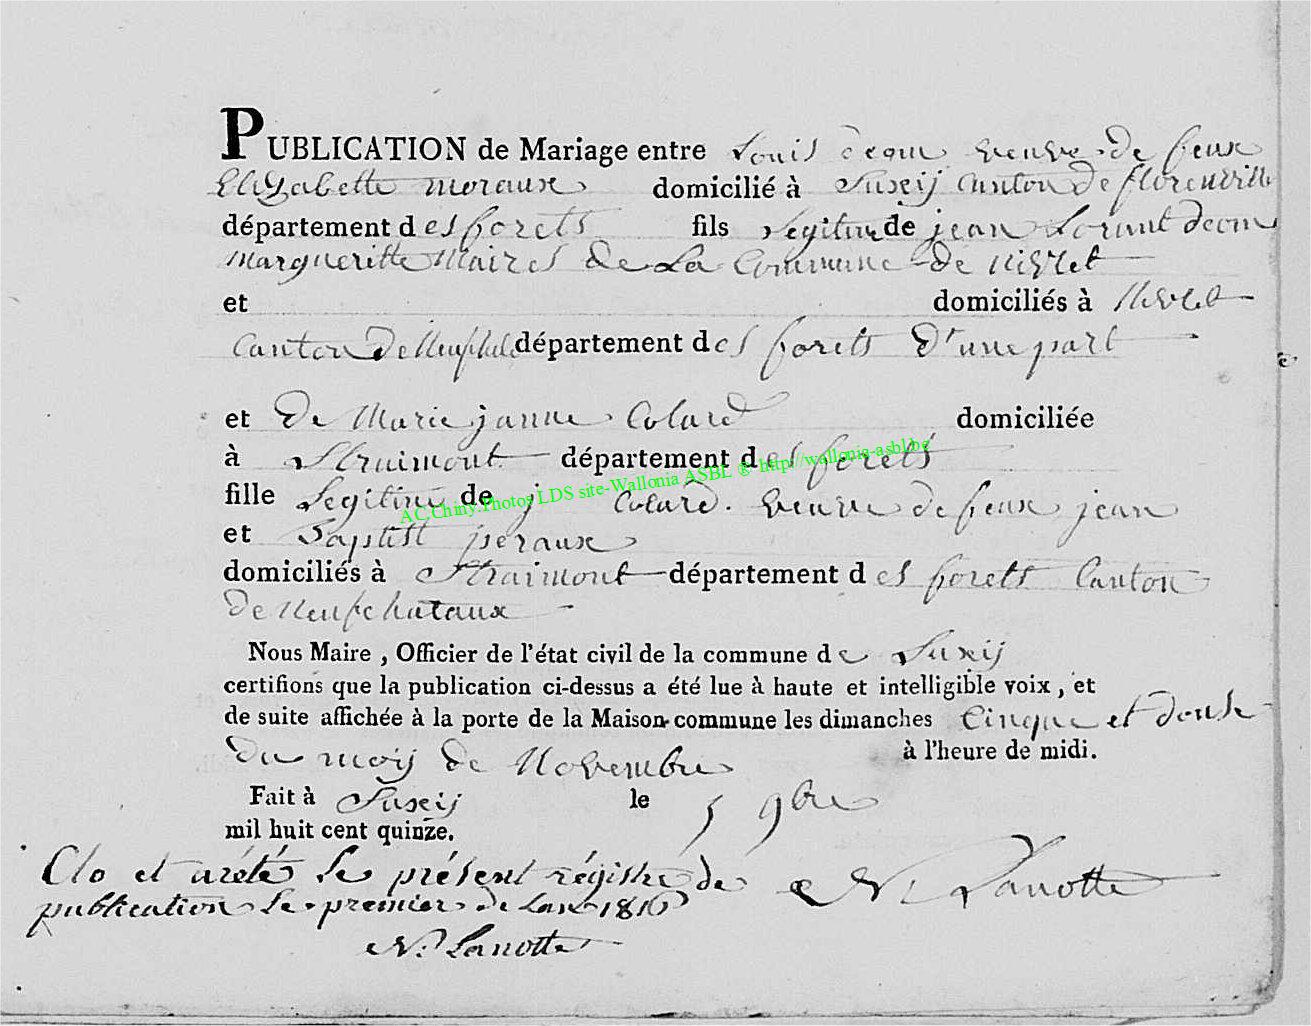 PUBLICATION de Mariage entre Louis deom veuve de feux
Elisabette moraux domicilié à Suxij Canton de florenville
département des forets fils Legitime de jean Lorant deom
margueritte Maires de La Commune de nivlet
et domiciliés à
Canton De département des forets D'une part
et De Marie janne Colard domiciliée
à Straimont département des forets
fille Legitime de j Colard. veuve de feux jean
et Baptist peraux
domiciliés à Straimont département des forets Canton
De neufchataux
Nous Maire, Officier de l'état civil de la commune de Suxij
certifions que la publication ci-dessus a été lue à haute et intelligible voix, et
de suite affichée à la porte de la Maison-commune les dimanches Cinque et douse
Du mois de Novembre à l'heure de midi.
Fait à Suxij le 5 9bre
mil huit cent quinze.
Clo et arété Le présent régistre de
publication Le premier de Lan 1816
N. Lanotte
N. Lanotte
AC.Chiny.Photos LDS site-Wallonia ASBL ® http://wallonia-asbl.be